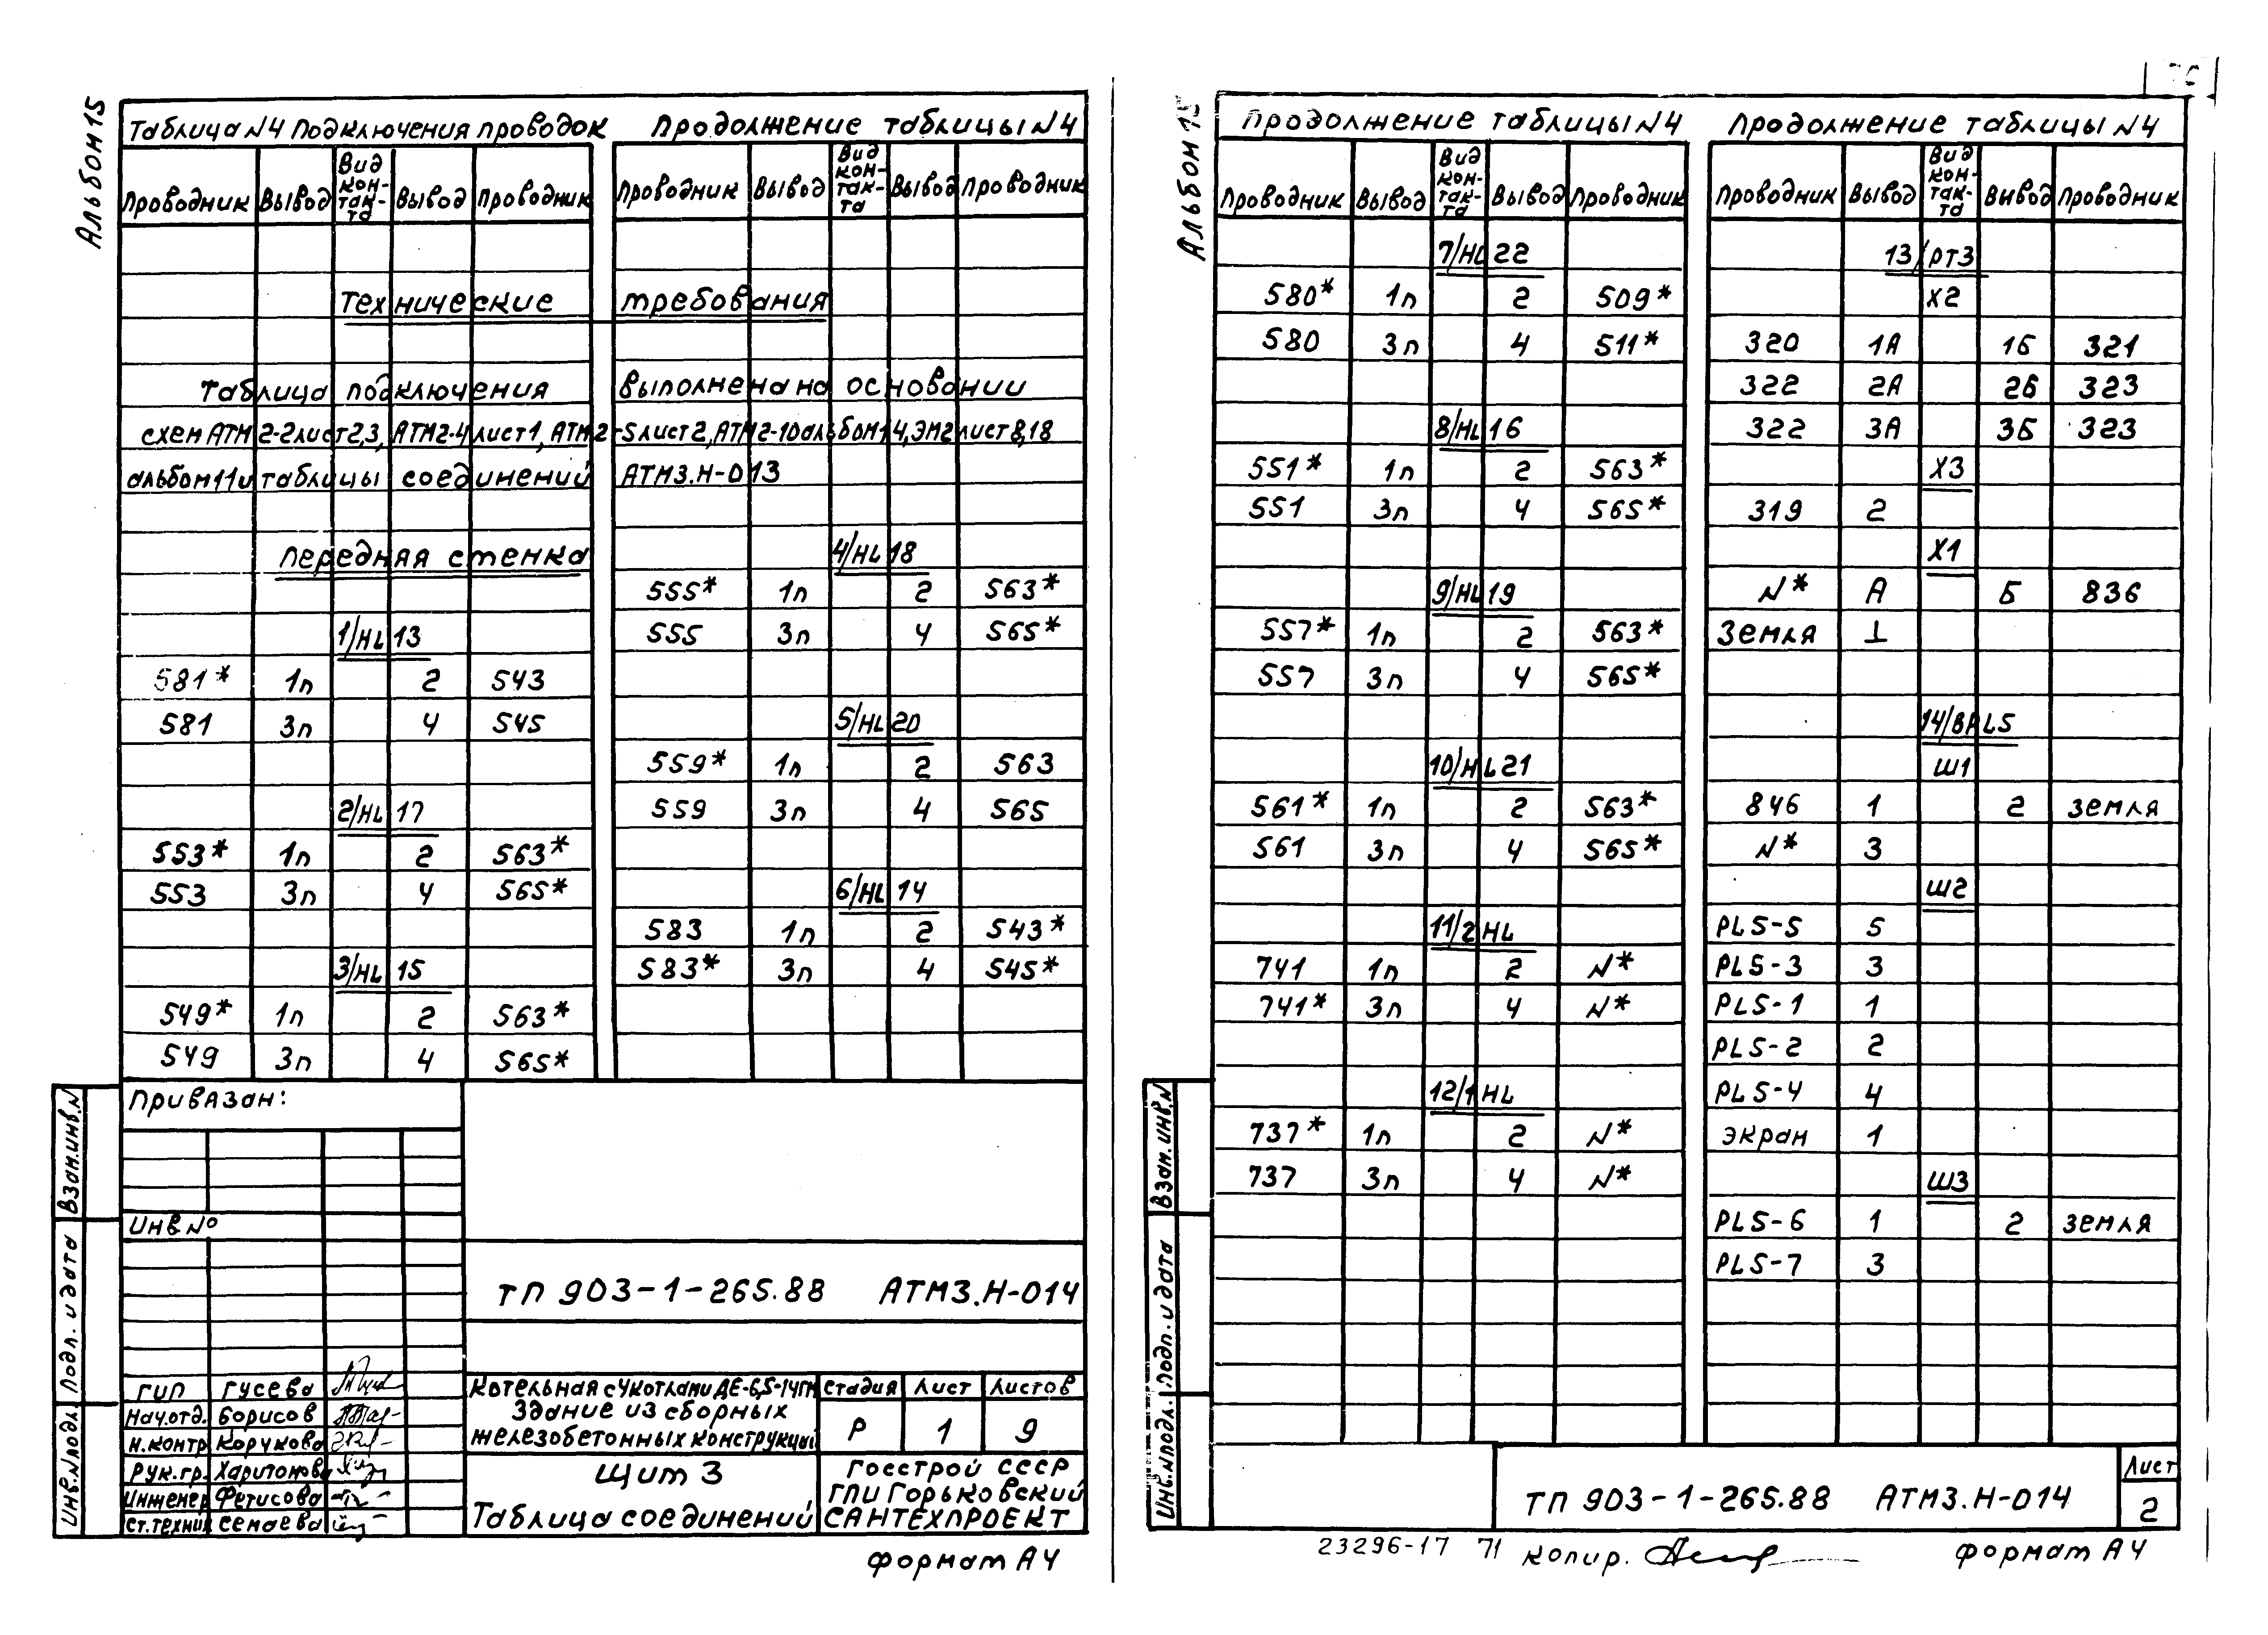 Альбом 15
Таблица N4 Подключения проводок
Проводник Вывод Вид кон-так-та Вывод Проводник
Технические требования
Таблица подключения выполнена на основании
схем АТМ2-2 лист 2,3, АТМ2-4 лист 1, АТМ2-5 лист 2, АТМ2-10 альбом 14, ЭМ2 лист 8,18
альбом 11 и таблицы соединений АТМ3.Н-013
Передняя стенка
1/HL13
581* 1п 2 543
581 3п 4 545
2/HL17
553* 1п 2 563*
553 3п 4 565*
3/HL15
549* 1п 2 563*
549 3п 4 565*
Продолжение таблицы N4
Проводник Вывод Вид кон-так-та Вывод Проводник
4/HL18
555* 1п 2 563*
555 3п 4 565*
5/HL20
559* 1п 2 563
559 3п 4 565
6/HL14
583 1п 2 543*
583* 3п 4 545*
Привязан:
Инв.№
ТП 903-1-265.88 АТМ3.Н-014
ГИП Гусева
Нач.отд. Борисов
Н.контр Корукова
Рук.гр. Харитонова
Инженер Фетисова
Ст.техник Семаева
Котельная с 4 котлами ДЕ-6,5-14ГМ
Здание из сборных
железобетонных конструкций
Стадия Лист Листов
Р 1 9
Щит 3
Таблица соединений
Госстрой СССР
ГПИ Горьковский
САНТЕХПРОЕКТ
Взам.инв.N
Подп. и дата
Инв.N подл.
Формат А4
Альбом 15
Продолжение таблицы N4
Проводник Вывод Вид кон-так-та Вывод Проводник
7/HL22
580* 1п 2 509*
580 3п 4 511*
8/HL16
551* 1п 2 563*
551 3п 4 565*
9/HL19
557* 1п 2 563*
557 3п 4 565*
10/HL21
561* 1п 2 563*
561 3п 4 565*
11/2HL
741 1п 2 N*
741* 3п 4 N*
12/1HL
737* 1п 2 N*
737 3п 4 N*
Продолжение таблицы N4
Проводник Вывод Вид кон-так-та Вывод Проводник
13/РТ3
Х2
320 1А 1Б 321
322 2А 2Б 323
322 3А 3Б 323
Х3
319 2
Х1
N* А Б 836
Земля ⊥
14/BPL5
Ш1
846 1 2 Земля
N* 3
Ш2
PL5-5 5
PL5-3 3
PL5-1 1
PL5-2 2
PL5-4 4
Экран 1
Ш3
PL5-6 1 2 Земля
PL5-7 3
Взам.инв.N
Подп. и дата
Инв.N подл.
ТП 903-1-265.88 АТМ3.Н-014
Лист
2
23296-17 71 Копир.
Формат А4